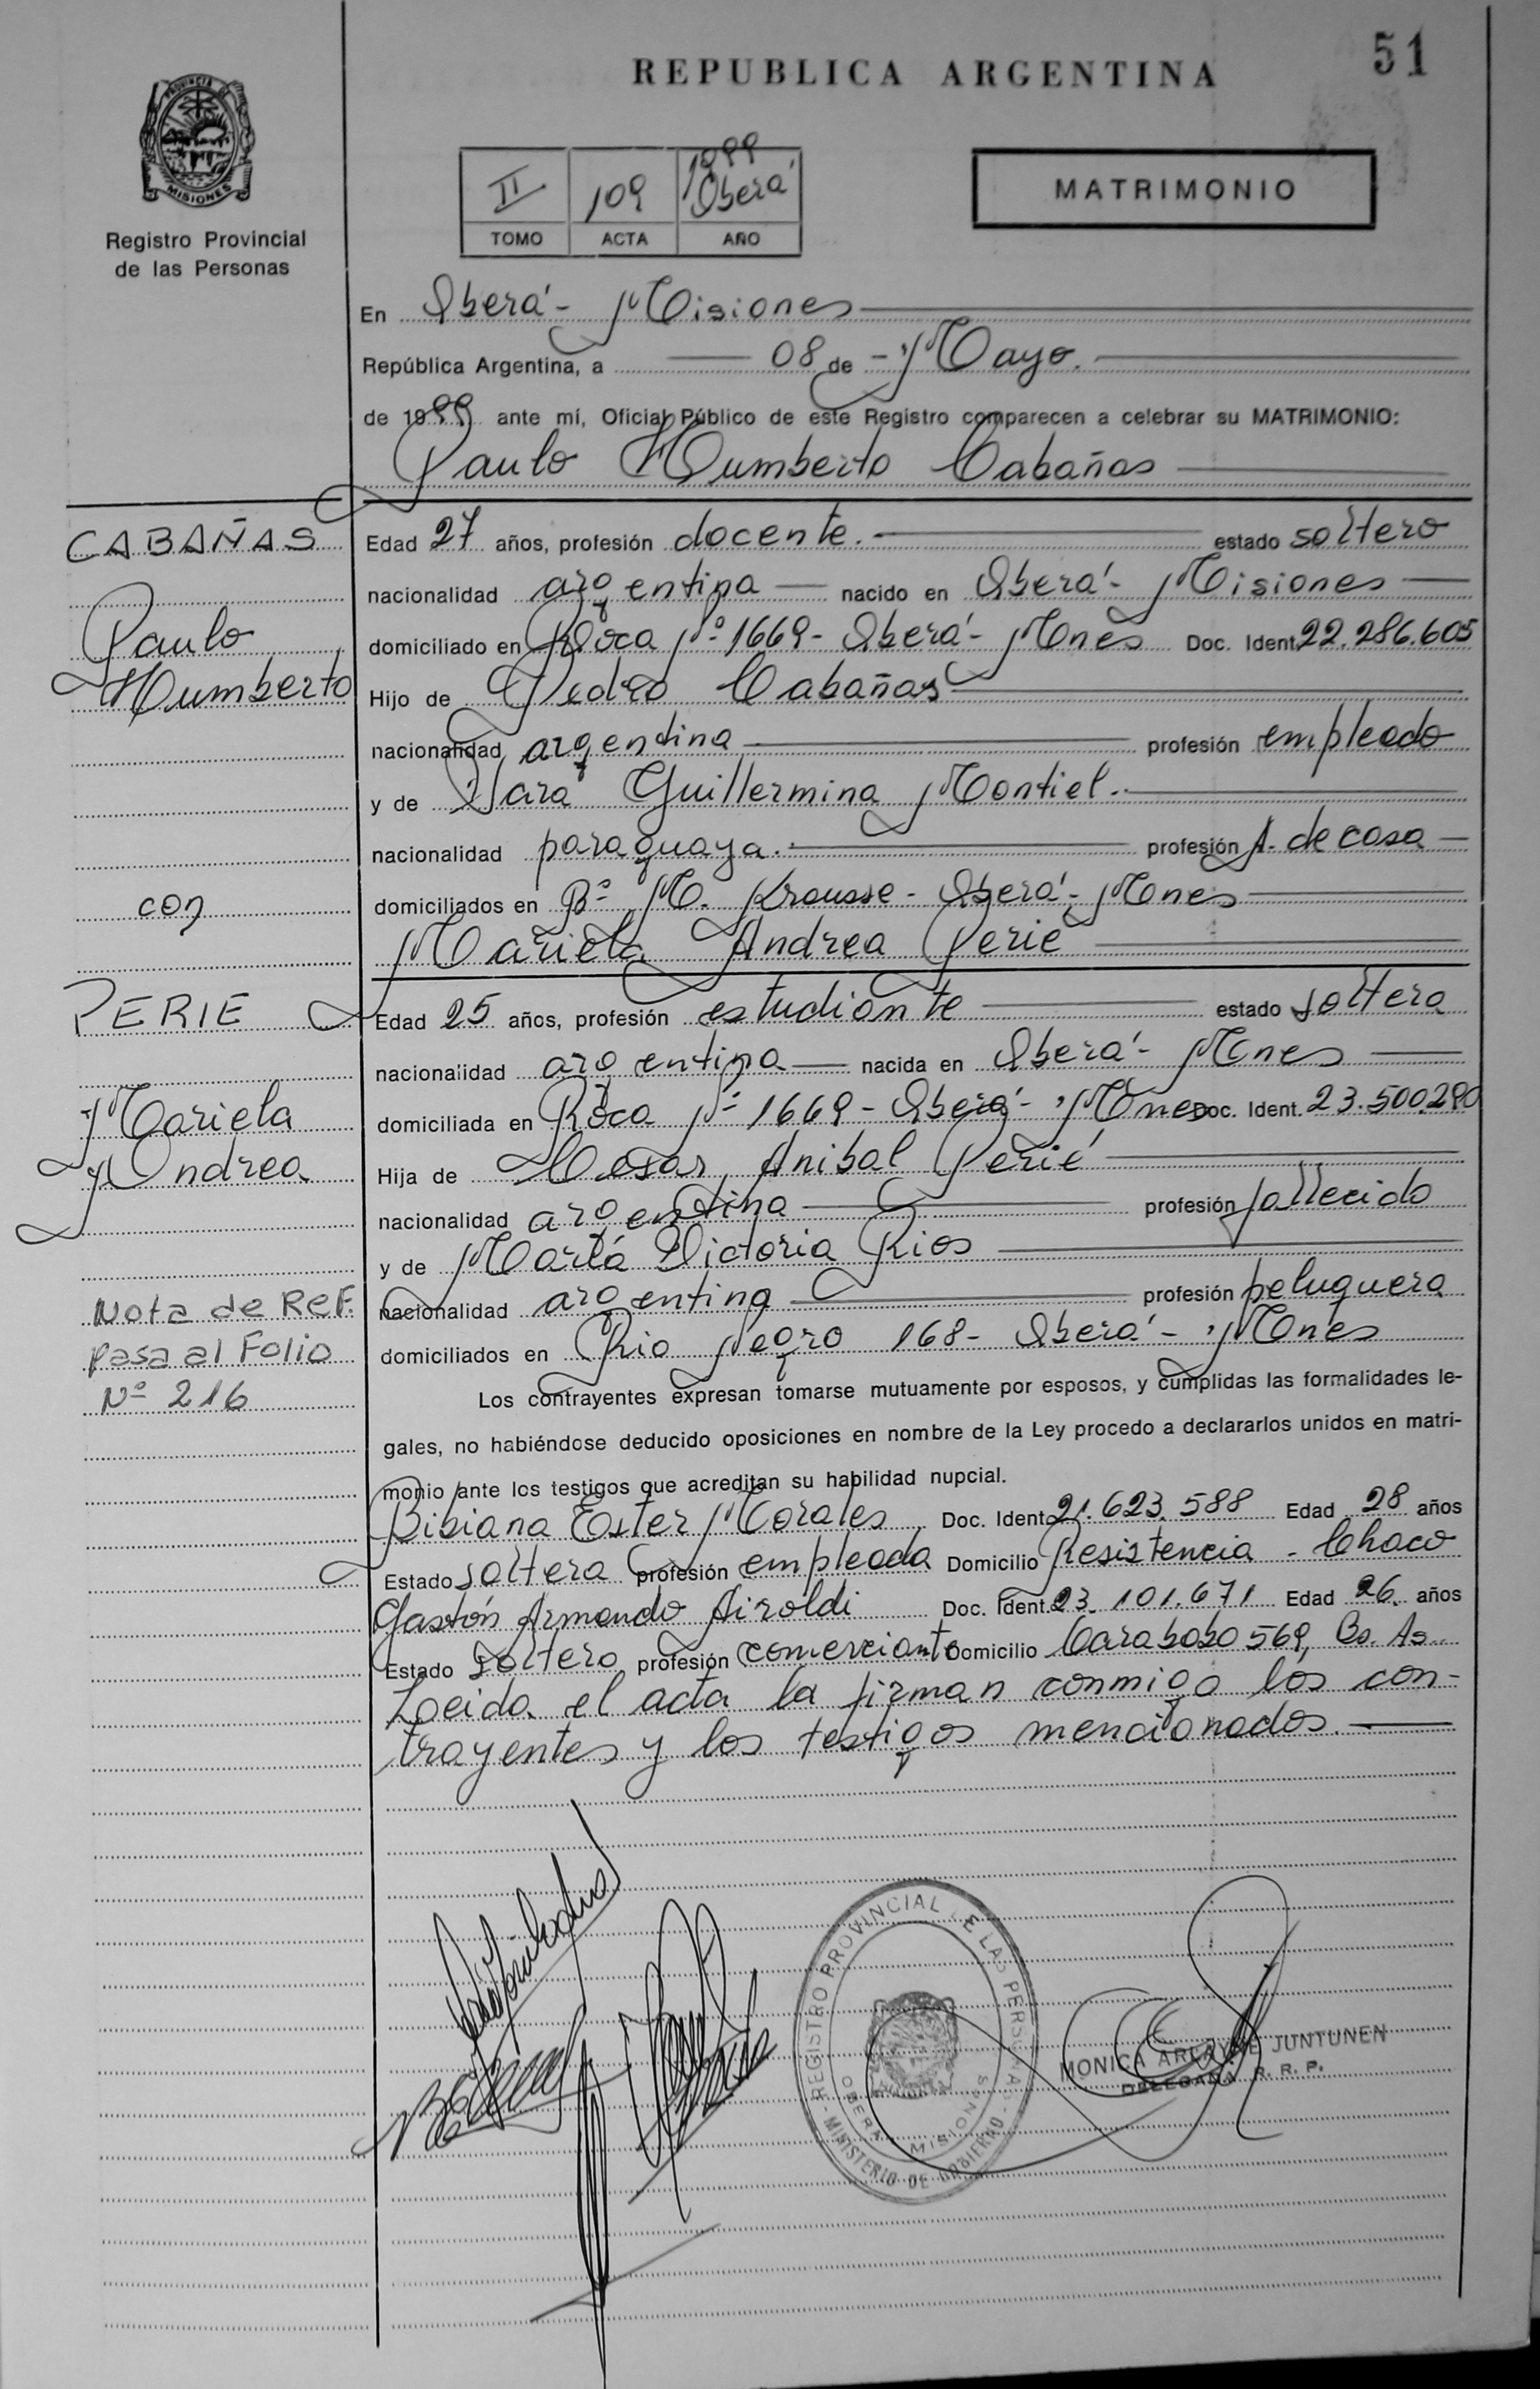 51
REPUBLICA ARGENTINA
PROVINCIA DE
MISIONES
Registro Provincial
de las Personas
II 109 1999 Oberá
TOMO ACTA AÑO
MATRIMONIO
En Oberá - Misiones
República Argentina, a 08 de - Mayo.
de 1999 ante mí, Oficial Público de este Registro comparecen a celebrar su MATRIMONIO:
Paulo Humberto Cabañas
CABAÑAS
Paulo
Humberto
con
PERIE
Mariela
Andrea
Nota de Ref.
pasa al Folio
Nº 216
Edad 27 años, profesión docente. estado soltero
nacionalidad argentina nacido en Oberá - Misiones
domiciliado en Roca Nº 1669 - Oberá - Mnes Doc. Ident. 22.286.605
Hijo de Pedro Cabañas
nacionalidad argentina profesión empleado
y de Sara Guillermina Montiel.
nacionalidad paraguaya. profesión A. de casa
domiciliados en Bº M. Krausse - Oberá - Mnes
Mariela Andrea Perié
Edad 25 años, profesión estudiante estado soltera
nacionalidad argentina nacida en Oberá - Mnes
domiciliada en Roca Nº 1669 - Oberá - Mnes Doc. Ident. 23.500.290
Hija de Cesar Anibal Perié
nacionalidad argentina profesión fallecido
y de Marta Victoria Rios
nacionalidad argentina profesión peluquera
domiciliados en Rio Negro 168 - Oberá - Mnes
Los contrayentes expresan tomarse mutuamente por esposos, y cumplidas las formalidades le-
gales, no habiéndose deducido oposiciones en nombre de la Ley procedo a declararlos unidos en matri-
monio ante los testigos que acreditan su habilidad nupcial.
Bibiana Ester Morales Doc. Ident. 21.623.588 Edad 28 años
Estado soltera profesión empleada Domicilio Resistencia - Chaco
Gastón Armando Airoldi Doc. Ident. 23.101.671 Edad 26 años
Estado soltero profesión comerciante Domicilio Carabobo 569, Bs. As.
Leida el acta la firman conmigo los con-
trayentes y los testigos mencionados.
REGISTRO PROVINCIAL DE LAS PERSONAS
OBERA MISIONES
- MINISTERIO DE GOBIERNO -
MONICA ARLAYNE JUNTUNEN
DELEGADA R. R. P.